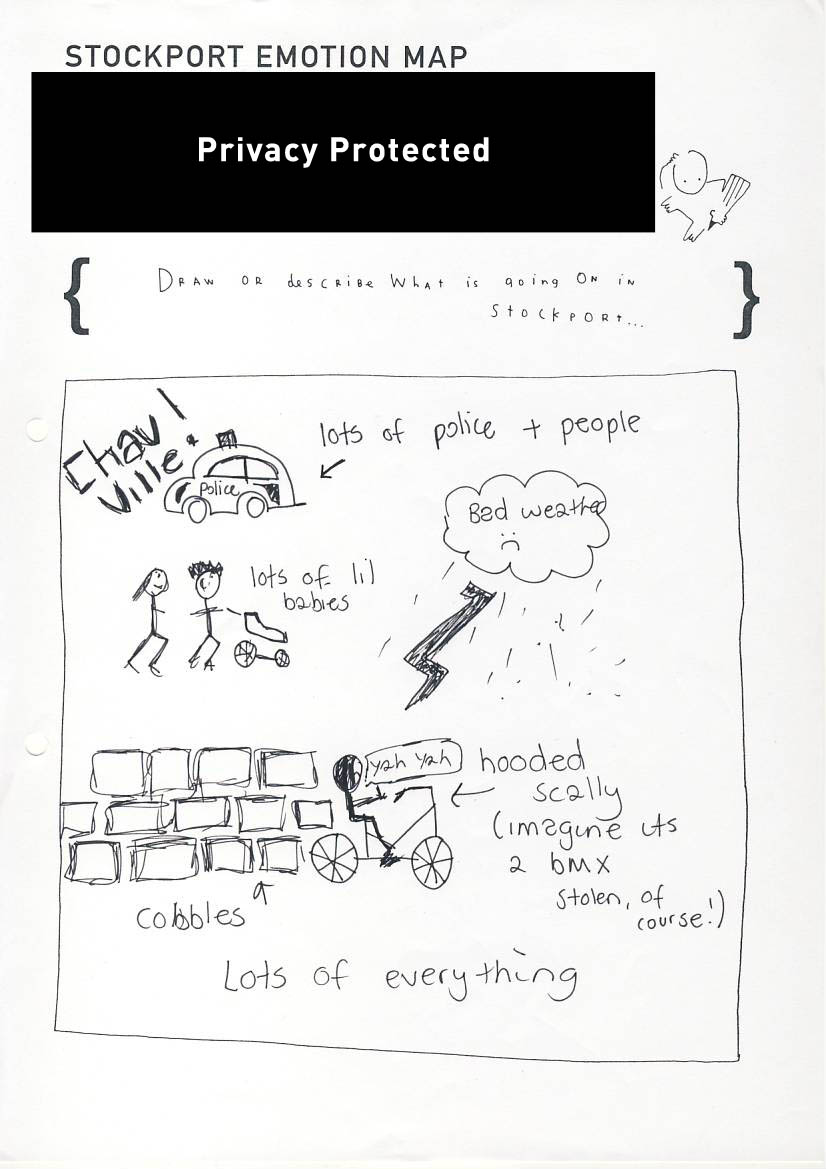 STOCKPORT EMOTION MAP
Privacy Protected
{ DRAW OR describe What is going ON in
STOCKPORt... }
Chav!
Ville!
Police
lots of police + people
Bad weather
lots of lil
babies
yah yah
hooded
scally
(imagine its
a bmx
stolen, of
course!)
cobbles
Lots of everything